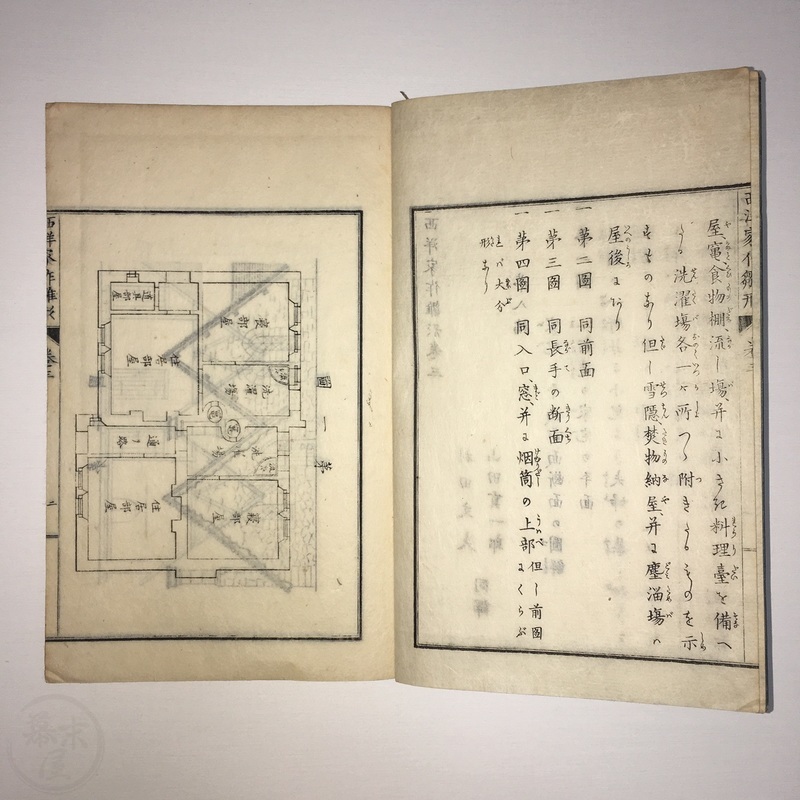 西洋家作雛形 巻三
屋、竃、食物棚、流し場、并に小き料理臺を備へ
たる洗濯場各一ヶ所つゝ附きたるものを示
すものなり但し雪隠、焚物納屋、并に塵溜場ハ
屋後にあり
一 第二圖 同前面
一 第三圖 同長手の断面
一 第四圖 同入口、窓、并に烟筒の上部但し前圖
にくらぶ
れバ大分
形なり
西洋家作雛形 巻三
第一圖
道具部屋
住居部屋
寝部屋
洗濯場
通り路
住居部屋
寝部屋
洗濯場
幕末屋